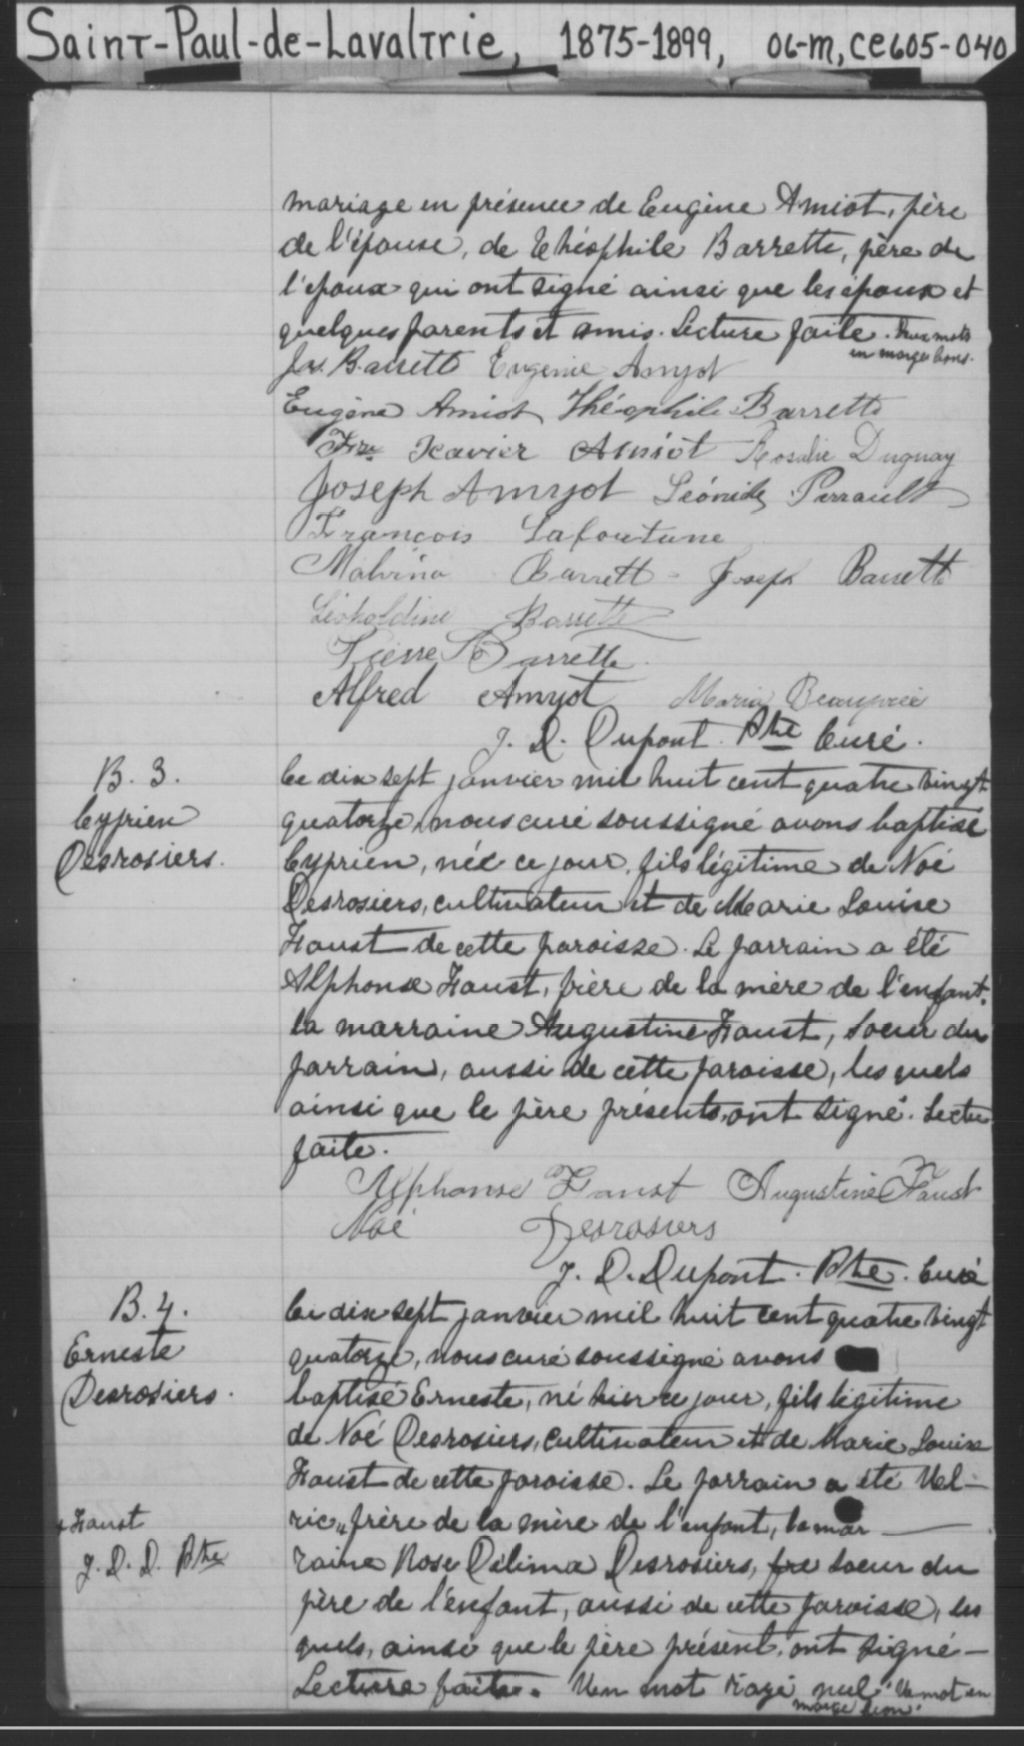 Saint-Paul-de-Lavaltrie, 1875-1899, 06-m, ce605-040
mariage en présence de Eugène Amiot, père
de l'épouse, de Théophile Barrette, père de
l'époux qui ont signé ainsi que les époux et
quelques parents et amis. Lecture faite. Deux mots
en marge bons.
Jos. Barrette Eugénie Amyot
Eugène Amiot Théophile Barrette
Frs Xavier Amiot Rosalie Duguay
Joseph Amyot Léonide Perrault
François Lafortune
Malvina Barrett - Joseph Barrette
Léopoldine Barrette
Pierre Barrette
Alfred Amyot Maria Beaupré
J. D. Dupont. Ptre Curé.
B. 3.
Cyprien
Desrosiers.
Ce dix sept janvier mil huit cent quatre vingt
quatorze, nous curé soussigné avons baptisé
Cyprien, né ce jour, fils légitime de Noé
Desrosiers, cultivateur et de Marie Louise
Faust de cette paroisse. Le parrain a été
Alphonse Faust, frère de la mère de l'enfant.
la marraine Augustine Faust, soeur du
parrain, aussi de cette paroisse, les quels
ainsi que le père présents, ont signé. Lectu
faite.
Alphonse Faust Augustine Faust
Noé Desrosiers
J. D. Dupont. Ptre. Curé
B. 4.
Erneste
Desrosiers.
Ce dix sept janvier mil huit cent quatre vingt
quatorze, nous curé soussigné avons
baptisé Erneste, né hier ce jour, fils légitime
de Noé Desrosiers, cultivateur et de Marie Louise
Faust de cette paroisse. Le parrain a été Ul-
ric, frère de la mère de l'enfant, la mar
+ Faust
J. D. D. Ptre
raine Rose Délima Desrosiers, soeur du
père de l'enfant, aussi de cette paroisse, les
quels, ainsi que le père présent, ont signé -
Lecture faite. Un mot rayé nul. Un mot en
marge bon.